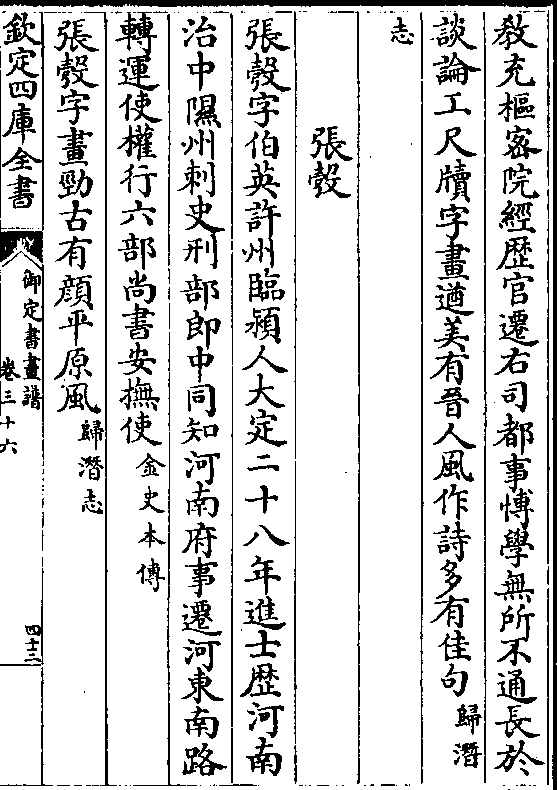 敎充樞密院經歷官遷右司都事博學無所不通長於
談論工尺牘字畫遒美有晉人風作詩多有佳句歸潛
志
張瑴
張瑴字伯英許州臨潁人大定二十八年進士歴河南
治中隰州刺史刑部郎中同知河南府事遷河東南路
轉運使權行六部尚書安撫使金史本傳
張瑴字畫勁古有顔平原風歸潛志
欽定四庫全書
御定書畫譜
卷三十六
四十三